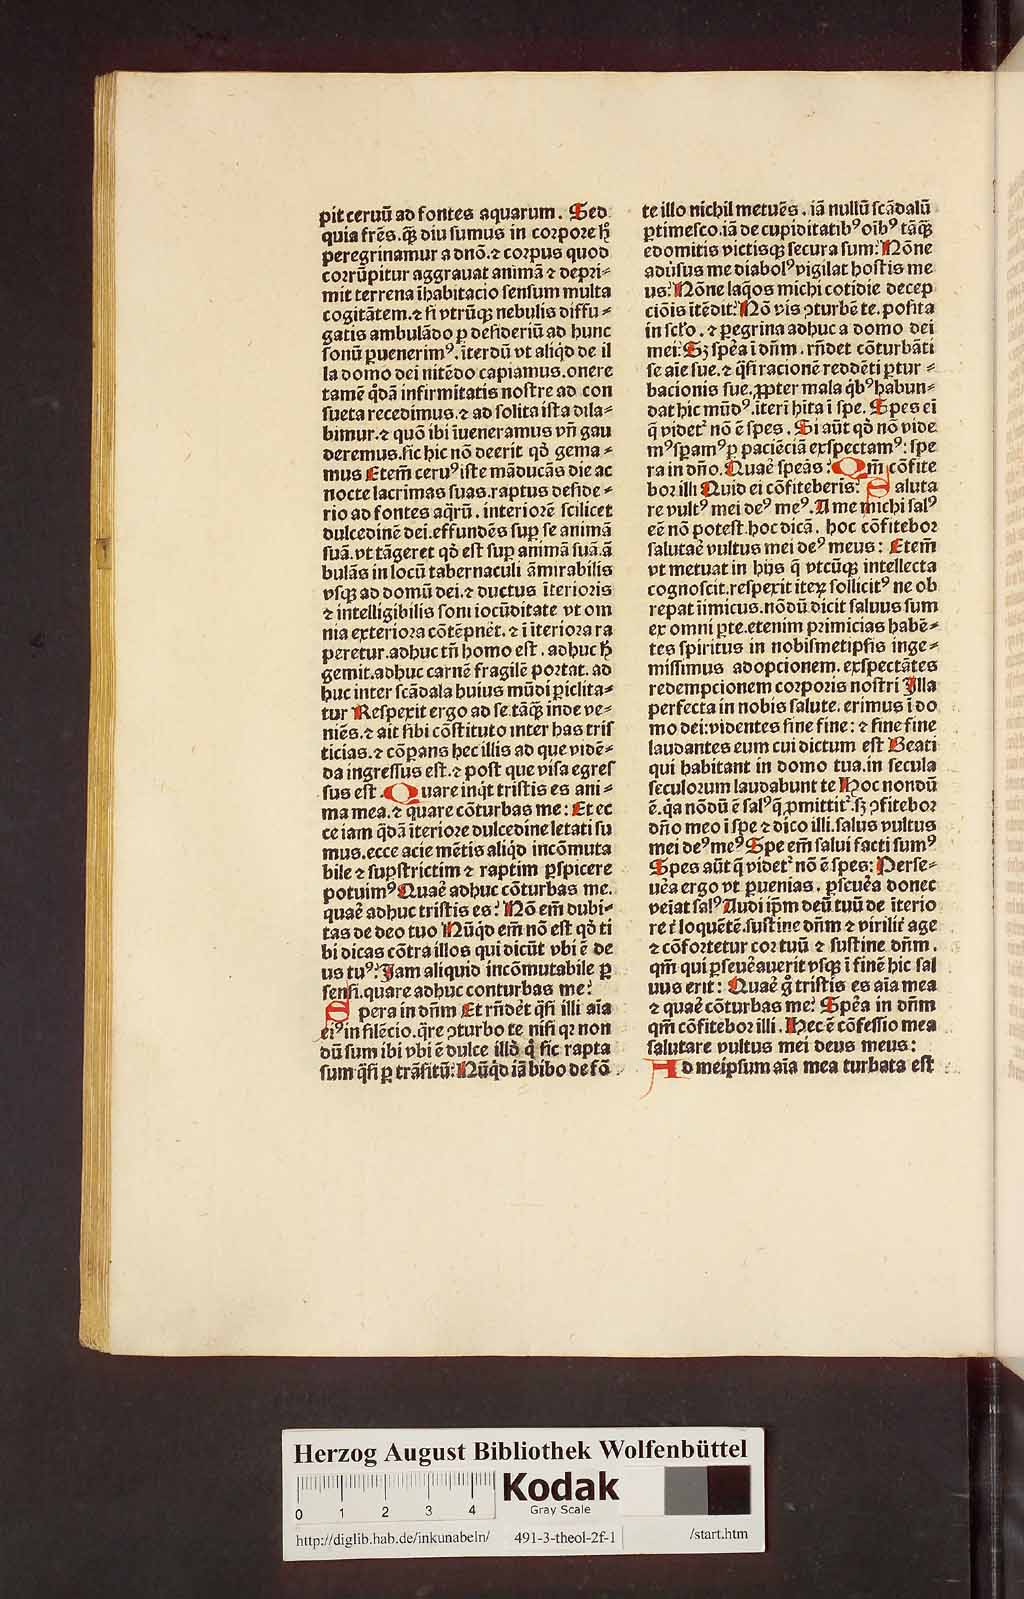 pit ceruū ad fontes aquarum . Sed
quia frēs. q̄ꝫ diu sumus in corpore h̄
peregrinamur a dnō. ⁊ corpus quod
corrūpitur aggrauat animā ⁊ depri⸗
mit terrena īhabitacio sensum multa
cogitātem. ⁊ si vtrūqꝫ nebulis diffu⸗
gatis ambulādo ꝑ desideriū ad hunc
sonū ꝑuenerimꝰ. īterdū vt aliq̇d de il
la domo dei nitēdo capiamus. onere
tamē q̇dā infirmitatis nostre ad con
sueta recedimus. ⁊ ad solita ista dila⸗
bimur. ⁊ quō ibi īueneramus vn̄ gau
deremus. sic hic nō deerit qd̛ gema⸗
mus Etem̄ ceruꝰ iste māducās die ac
nocte lacrimas suas. raptus deside⸗
rio ad fontes aq̄rū . interiorē scilicet
dulcedinē dei. effundēs suꝑ se animā
suā. vt tāgeret qd̛ est suꝑ animā suā. ā
bulās in locū tabernaculi āmirabilis
vsqꝫ ad domū dei. ⁊ ductus īterioris
⁊ intelligibilis soni iocūditate vt om
nia exteriora cōtēpnet. ⁊ ī īteriora ra
peretur. adhuc tn̄ homo est . adhuc h̄
gemit. adhuc carnē fragilē portat. ad
huc inter scādala huius mūdi ꝑiclita⸗
tur Respexit ergo ad se. tāq̄ꝫ inde ve⸗
niēs. ⁊ ait sibi cōstituto inter has tris
ticias. ⁊ cōꝑans hec illis ad que vidē⸗
da ingressus est. ⁊ post que visa egres
sus est . Quare inq̇t tristis es ani⸗
ma mea. ⁊ quare cōturbas me: Et ec
ce iam q̇dā īteriore dulcedine letati su
mus. ecce acie mētis aliq̇d incōmuta
bile ⁊ suꝑstrictim ⁊ raptim ꝑspicere
potuimꝰ Quae̛ adhuc cōturbas me.
quae̛ adhuc tristis es: Nō em̄ dubi⸗
tas de deo tuo Nūq̇d em̄ nō est qd̛ ti
bi dicas cōtra illos qui dicūt vbi ē de
us tuꝰ: Jam aliquid incōmutabile ꝑ
sensi. quare adhuc conturbas me:
Spera in dn̄m Et rn̄de̛t q̄si illi aīa
eiꝰ in silēcio. q̄re ꝯturbo te nisi qꝛ non
dū sum ibi vbi ē dulce illd̛ q̊ sic rapta
sum q̄si ꝑ trāsitū: Nūq̇d iā bibo de fō
te illo nichil metuēs . iā nullū scādalū
ꝑtimesco. iā de cupiditatibꝰ oībꝰ tāq̄ꝫ
edomitis victisqꝫ secura sum: Nōne
adūsus me diabolꝰ vigilat hostis me
us: Nōne laq̊os michi cotidie decep
ciōis ītēdit: Nō vis ꝯturbē te. posita
in sclơ . ⁊ ꝑegrina adhuc a domo dei
mei: Sꝫ spe̛a ī dn̄m . rn̄det cōturbāti
se aīe sue. ⁊ q̄si racionē reddēti ꝑtur⸗
bacionis sue. ꝓpter mala q̇bꝰ habun⸗
dat hic mūdꝰ. iteri̛ hita ī spe. Spes ei̅
q̄ videt᷑ nō ē spes . Si aūt qd̛ nō vide
mꝰ sꝑamꝰ ꝑ paciēciā exspectamꝰ: spe
ra in dn̄o. Quae̛ spe̛as: Qm̄ cōfite
bor illi Quid ei cōfiteberis: Saluta
re vultꝰ mei deꝰ meꝰ. A me michi salꝰ
eē nō potest. hoc dicā. hoc cōfitebor
salutae̛ vultus mei deꝰ meus: Etem̄
vt metuat in hijs q̄ vtcūqꝫ intellecta
cognoscit. respexit iteꝝ sollicitꝰ ne ob
repat īimicus. nōdū dicit saluus sum
ex omni ꝑte. etenim pꝛimicias habē⸗
tes spiritus in nobismetipsis inge⸗
missimus adopcionem. exspectātes
redempcionem corporis nostri Illa
perfecta in nobis salute. erimus ī do
mo dei: videntes sine fine: ⁊ sine fine
laudantes eum cui dictum est Beati
qui habitant in domo tua. in secula
seculorum laudabunt te Hoc nondū
ē. q̇a nōdū ē salꝰ q̄ ꝓmittit᷑. sꝫ ꝯfitebor
dn̄o meo ī spe ⁊ dico illi. salus vultus
mei deꝰ meꝰ Spe em̄ salui facti sumꝰ
Spes aūt q̄ videt᷑ nō ē spes: Perse⸗
ue̛a ergo vt ꝑuenias . ꝑseue̛a donec
ve̛iat salꝰ Audi ip̄m deū tuū de īterio
re t̛ loquētē. sustine dn̄m ⁊ virilit᷑ age
⁊ cōfortetur cor tuū ⁊ sustine dn̄m .
qm̄ qui ꝑseue̛auerit vsqꝫ ī finē hic sal
uus erit: Quae̛ g̊ tristis es aīa mea
⁊ quae̛ cōturbas me: Spe̛a in dn̄m
qm̄ cōfitebor illi . Hec ē cōfessio mea
salutare vultus mei deus meus:
Ad meipsum aīa mea turbata est
Herzog August Bibliothek Wolfenbüttel
0 1 2 3 4
Kodak
Gray Scale
http://diglib.hab.de/inkunabeln/ 491-3-theol-2f-1 /start.htm